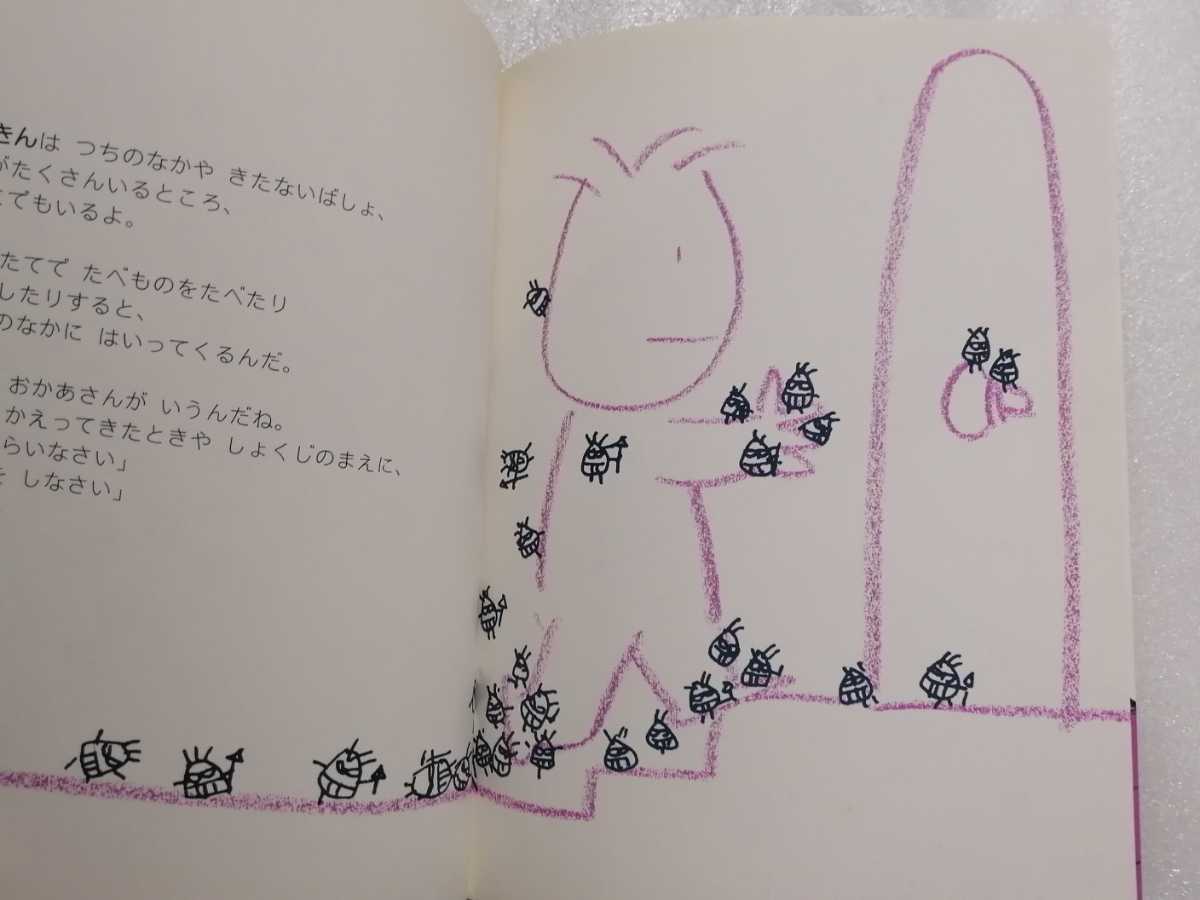 きんは つちのなかや きたないばしょ、
がたくさんいるところ、
こでもいるよ。
たてで たべものをたべたり
したりすると、
のなかに はいってくるんだ。
おかあさんが いうんだね。
かえってきたときや しょくじのまえに、
らいなさい」
を しなさい」